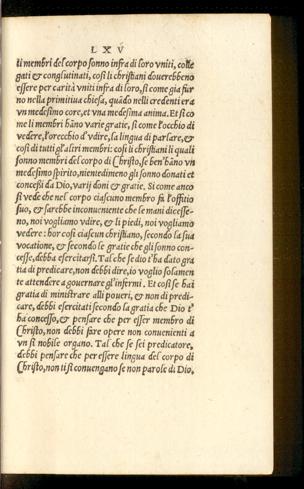 LXV
ti membri del corpo sonno infra di loro vniti, colle
gati & conglutinati, cosi li christiani douerebbeno
essere per carità vniti infra di loro, si come gia fur
no nella primitiua chiesa, quãdo nelli credenti era
vn medesimo core, et vna medesima anima. Et si co
me li membri hãno varie gratie, si come l'occhio di
vedere, l'orecchio d'vdire, la lingua di parlare, &
cosi di tutti gl'altri membri: cosi li christiani li quali
sonno membri del corpo di Christo, se ben'hãno vn
medesimo spirito, nientedimeno gli sonno donati et
concessi da Dio, varij doni & gratie. Si come anco
si vede che nel corpo ciascuno membro fa l'offitio
suo, & sarebbe inconueniente che le mani dicesse-
no, noi vogliamo vdire, & li piedi, noi vogliamo
vedere: hor cosi ciascun christiano, secondo la sua
vocatione, & secondo le gratie che gli sonno con-
cesse, debba esercitarsi. Tal che se dio t'ha dato gra
tia di predicare, non debbi dire, io voglio solamen
te attendere a gouernare gl'infermi. Et cosi se hai
gratia di ministrare alli poueri, & non di predi-
care, debbi esercitati secondo la gratia che Dio t'
ha concesso, & pensare che per esser membro di
Christo, non debbi fare opere non conuenienti a
vn si nobile organo. Tal che se sei predicatore,
debbi pensare che per essere lingua del corpo di
Christo, non ti si conuengano se non parole di Dio,